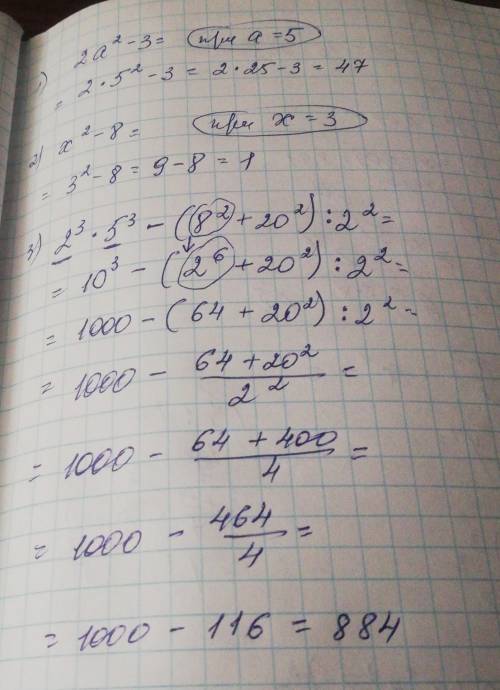 1) 2a² - 3 = при a = 5
= 2 · 5² - 3 = 2 · 25 - 3 = 47
2) x² - 8 = при x = 3
= 3² - 8 = 9 - 8 = 1
3) 2³ · 5³ - (8² + 20²) : 2² =
= 10³ - (2⁶ + 20²) : 2² =
= 1000 - (64 + 20²) : 2² =
= 1000 - (64 + 20²)/2² =
= 1000 - (64 + 400)/4 =
= 1000 - 464/4 =
= 1000 - 116 = 884